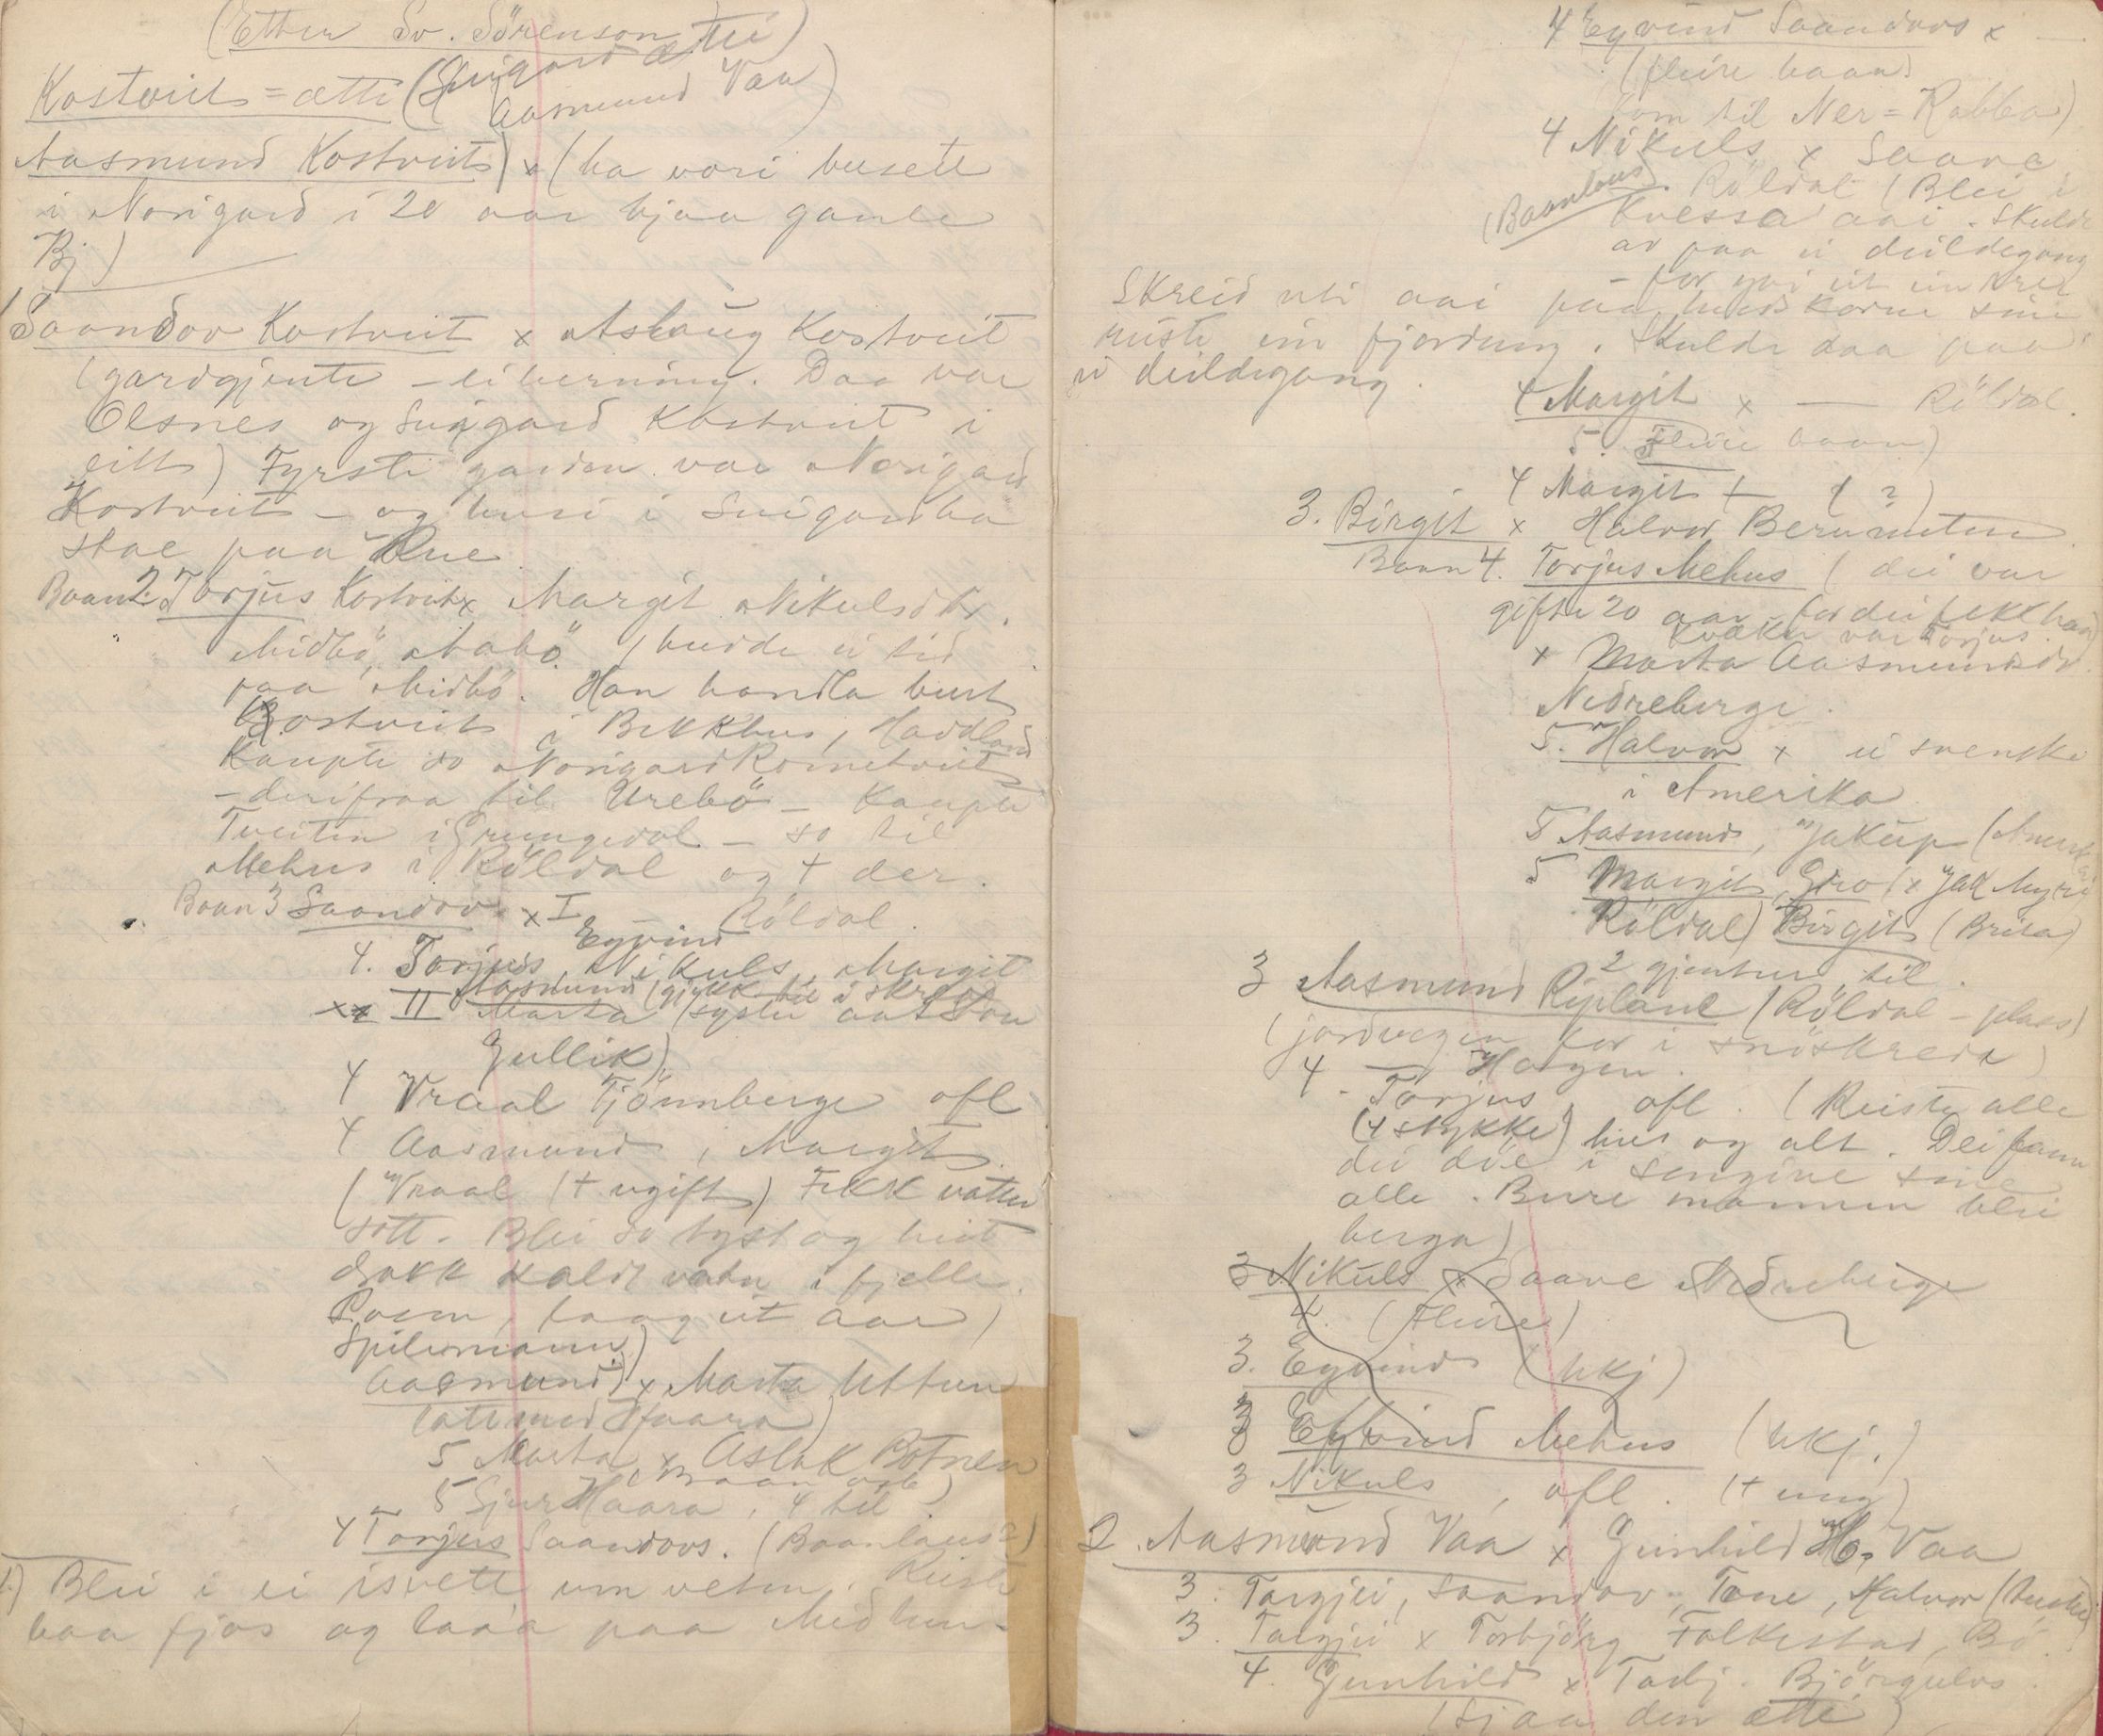 (Etter Sv. Sörenson
Kostveit = ætti (Suigard ætti
Aasmund Vaa)
Aasmund Kostveit) x (ha vori busett
i Norigard i 20 aar hjaa gamle
Bj)
Saandov Kostveit x Aslaug Kostveit
(gardgjente - ei berning. Daa var
Olsnes og Suigard Kostveit i
eitt) Fyrste garden var Norigard
Kostveit - og husi i Suigardha
stae paa Rue
Baan 2. Torjus Kostveit x Margit Nikulsdtr.
Midbö, Rabö (budde ei tid
paa Midbö. Han handla burt
Kostveit i Bekkhus, Haddland
Kaupte so Norigard Romtveit
- derifraa til Urebö - Kaupte
Tveiten i Grungedal - so til
Mehus i Röldal og + der.
Baan 3 Saandov x I - Röldal
Eyvind
4. Torjus, Nikuls, Margit
Aasmund (gjekk til i skreda
xx II Marta (syster aat Ston
Gullik)
4 Vraal Tjönnberge ofl
4 Aasmund, Margit
(Vraal (+ ugift) Fekk vatter
sott. Blei so tyst og heit
drakk kaldt vatn i fjelle.
Poem, laag eit aar)
Spilemann)
Aasmund) x Marta Uttun
(att med Haara)
5 Marta x Aslak Botnen
(Baan ofl)
5 Sjur Haara, 4 til
4 Torjus Saandovs. (Baanlaus?)
1) Blei i ei isvett um veten. Reiste
baa fjos og laaa paa Midhus-
4 Eyvind Saandovs x —
(fleire baan)
Kom til Ner = Rabba)
4 Nikuls x Saave
(Baanlaus) Röldal (Blei i
Kvessa aai. Skulde
av paa ei deildegang
- for yvi eit
Skreid uti aai paa hesteskorne sine
miste ein fjordung. Skulde daa paa
ei deildegang.
4 Margit x — Röldal.
5. Fleire baan)
4 Margit + (?)
3. Birgit x Halvor Berunuten
Baan 4. Torjus Mehus (dei var
gifte 20 aar fördei fekk baan)
Kvækar var Torjus.
x Marta Aasmundsdr.
Nedreberge.
5. Halvor x ei svenske
i Amerika
5 Aasmund, Jakup (Amerika)
5 Margit, Gro (x Jak Myri
Röldal) Birgit (Brita)
2 gjentur til.
3 Aasmund Ripland (Röldal - plass)
(jordvegen for i snöskreda)
4 - Hagen.
4. Torjus, ofl. (Reiste alle
(4 stykke) hus og alt. Dei fann
dei döe i sengine sine
alle. Bure mannen blei
berga)
3 Nikuls x Saave Nedreberge
4. (Fleire)
3. Eyvind (ukj)
3 Eyvind Mehus (ukj.)
3 Nikuls, ofl. (+ ung)
2 Aasmund Vaa x Gunhild H. Vaa
3. Targjei, Saandov, Tone, Halvor
3. Targjei x Torbjörg Folkestad, Bö
4. Gunhild x Tarj. Björgulvs.
(Sjaa den ætti)